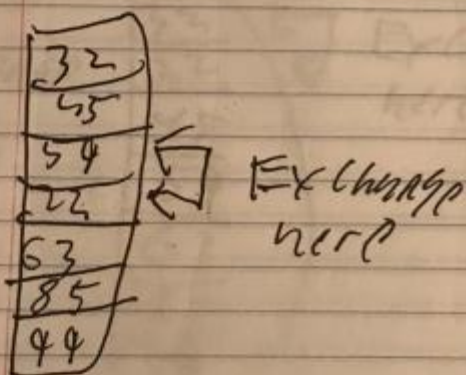 32
45
54
22
63
85
44
Exchange
here